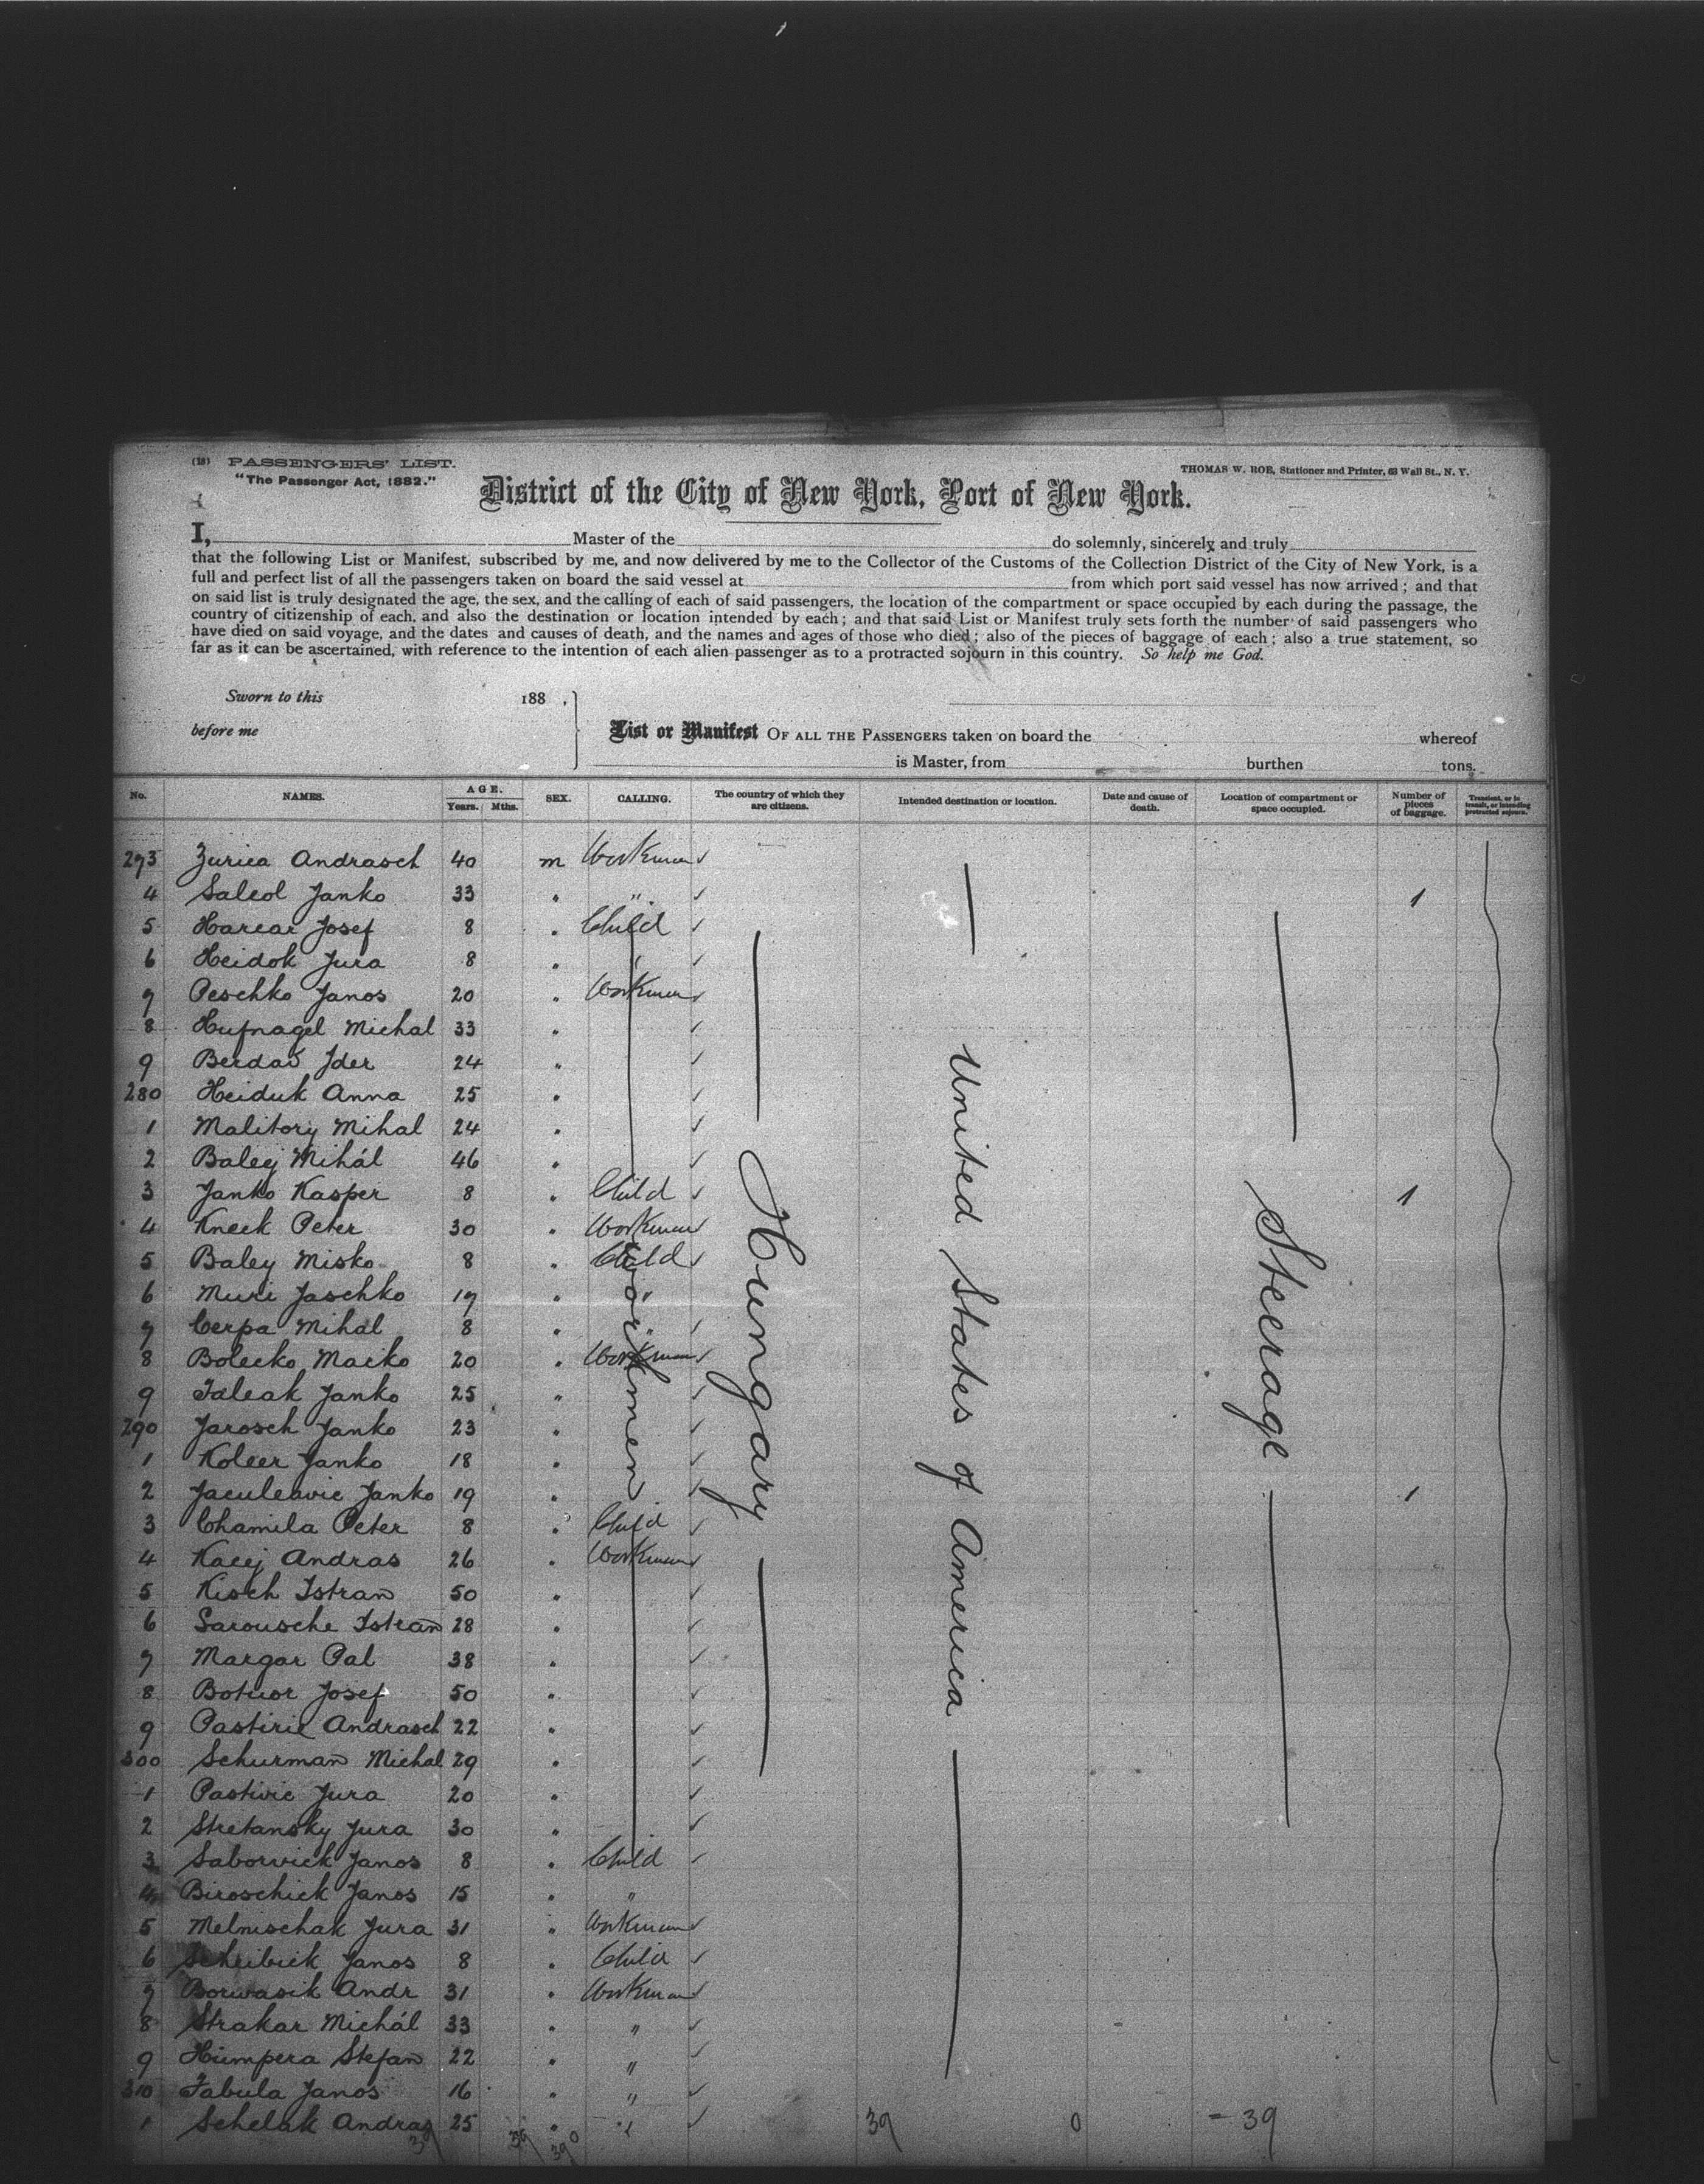 (18) PASSENGERS' LIST.
"The Passenger Act, 1882."
THOMAS W. ROE, Stationer and Printer, 63 Wall St., N. Y.
District of the City of New York, Port of New York.
I, Master of the do solemnly, sincerely and truly
that the following List or Manifest, subscribed by me, and now delivered by me to the Collector of the Customs of the Collection District of the City of New York, is a
full and perfect list of all the passengers taken on board the said vessel at from which port said vessel has now arrived; and that
on said list is truly designated the age, the sex, and the calling of each of said passengers, the location of the compartment or space occupied by each during the passage, the
country of citizenship of each, and also the destination or location intended by each; and that said List or Manifest truly sets forth the number of said passengers who
have died on said voyage, and the dates and causes of death, and the names and ages of those who died; also of the pieces of baggage of each; also a true statement, so
far as it can be ascertained, with reference to the intention of each alien passenger as to a protracted sojourn in this country. So help me God.
Sworn to this 188 ,
before me
List or Manifest OF ALL THE PASSENGERS taken on board the whereof
is Master, from burthen tons.
No. NAMES. AGE. Years. Mths. SEX. CALLING. The country of which they are citizens. Intended destination or location. Date and cause of death. Location of compartment or space occupied. Number of pieces of baggage. Transient, or in transit, or intending protracted sojourn.
273 Zurica Andrasch 40 m Workman
4 Saleol Janko 33 " " 1
5 Harcar Josef 8 " Child
6 Heidok Jura 8 "
7 Peschko Janos 20 " Workman
8 Hufnagel Michal 33 "
9 Berdas Jder 24 "
280 Heiduk Anna 25 "
1 Malitory Mihal 24 "
2 Baleij Mihál 46 "
3 Janko Kasper 8 " Child 1
4 Kneek Peter 30 " Workman
5 Baley Misko 8 " Child
6 Muri Jaschko 17 " "
7 Cerpa Mihal 8 " "
8 Bolecko Macko 20 " Workman
9 Taleak Janko 25 "
290 Jarosch Janko 23 "
1 Koleer Janko 18 "
2 Jaculeavic Janko 19 " 1
3 Chamila Peter 8 " Child
4 Kacij Andras 26 " Workman
5 Kisch Istran 50 "
6 Sarousche Istran 28 "
7 Margar Pal 38 "
8 Botuor Josef 50 "
9 Pastiric Andrasch 22 "
300 Schurman Michal 29 "
1 Pastivic Jura 20 "
2 Stretansky Jura 30 "
3 Saborvick Janos 8 " Child
4 Biroschick Janos 15 " "
5 Melnischak Jura 31 " Workman
6 Scheibick Janos 8 " Child
7 Borwasik Andr 31 " Workman
8 Strakar Michál 33 " "
9 Humpera Stefan 22 " "
310 Tabula Janos 16 " "
1 Schelak Andras 25 " "
Workmen
Hungary
United States of America
Steerage
39 39 0 39 0 - 39